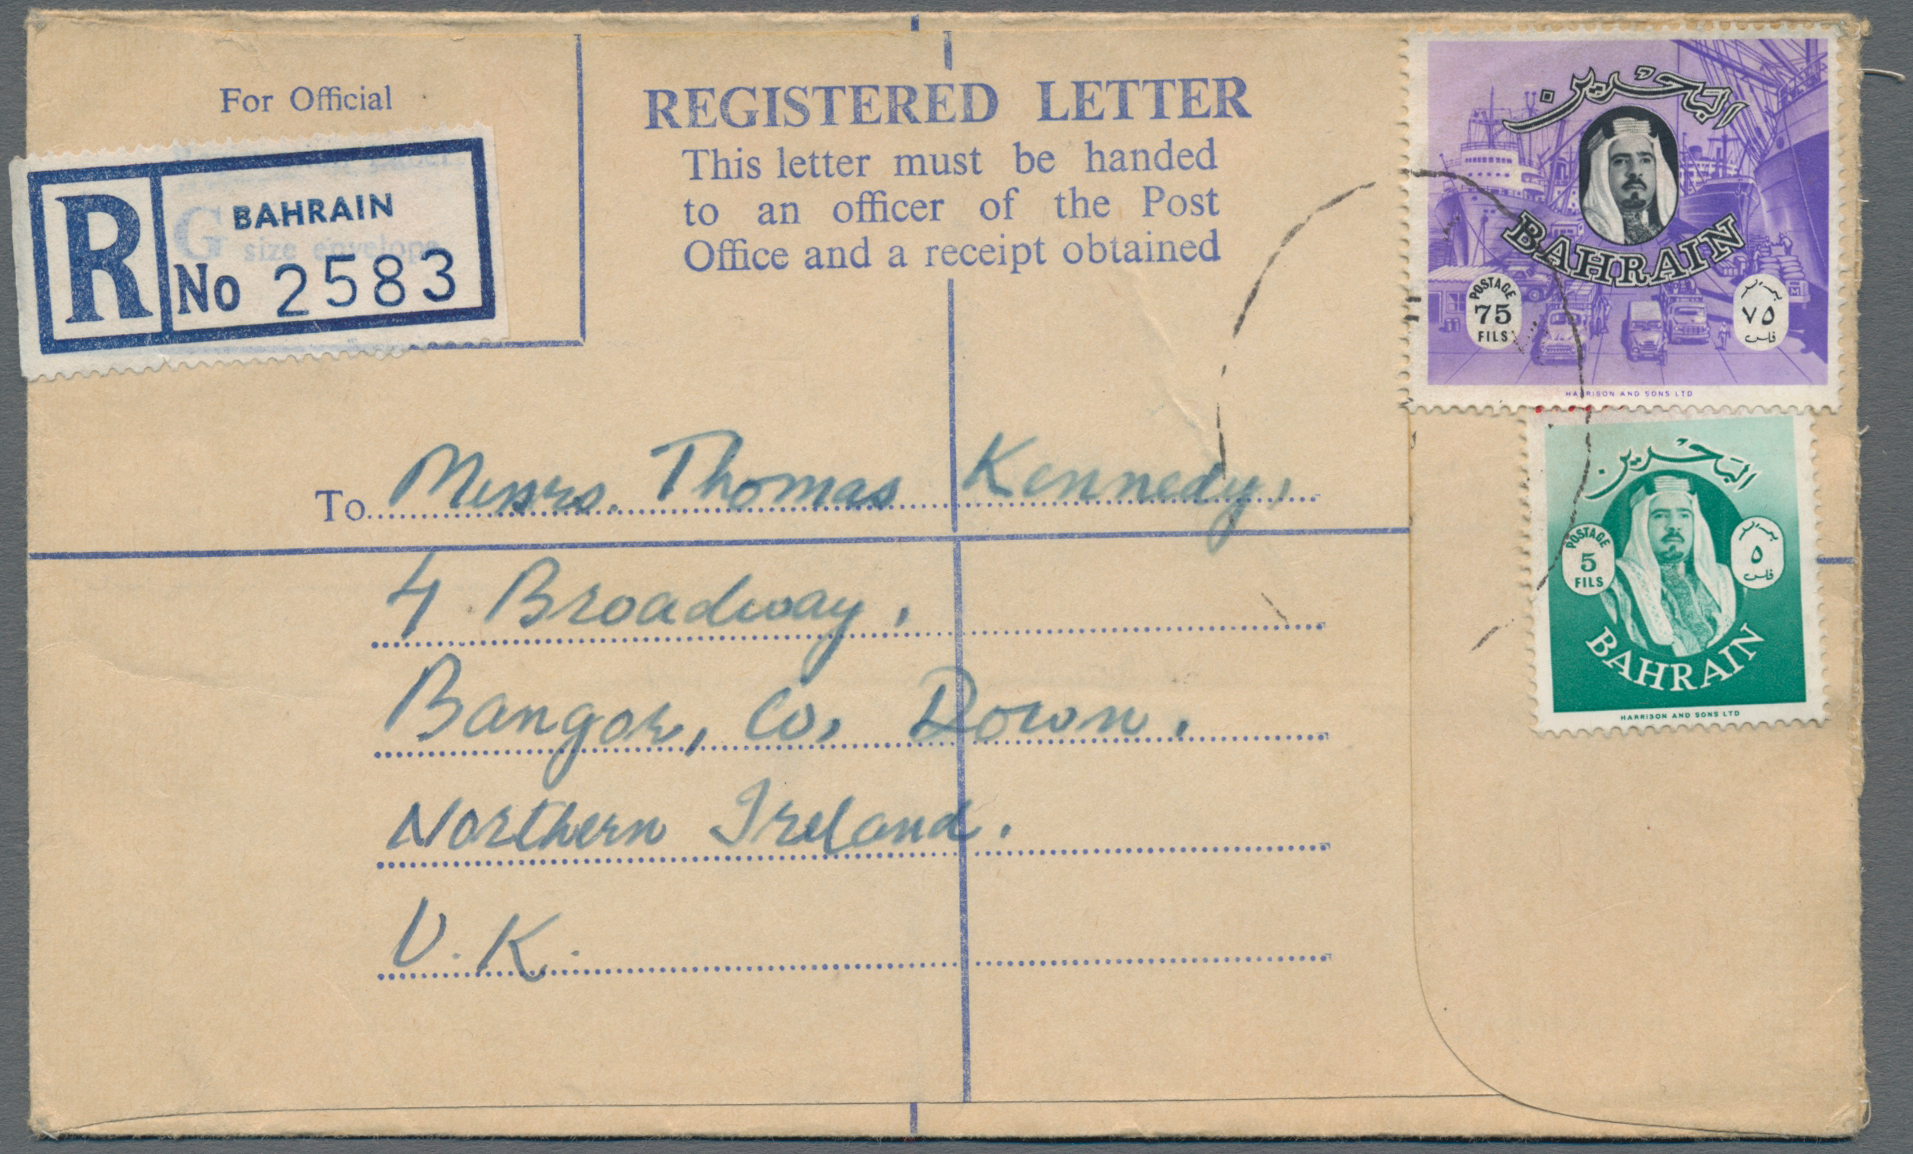 For Official
R
BAHRAIN
G
size envelope
No 2583
REGISTERED LETTER
This letter must be handed
to an officer of the Post
Office and a receipt obtained
البحرين
BAHRAIN
POSTAGE
75
FILS
بريد
٧٥
فلس
HARRISON AND SONS LTD
البحرين
POSTAGE
5
FILS
بريد
٥
فلس
BAHRAIN
HARRISON AND SONS LTD
To Messrs. Thomas Kennedy,
4 Broadway,
Bangor, Co. Down.
Northern Ireland.
U.K.